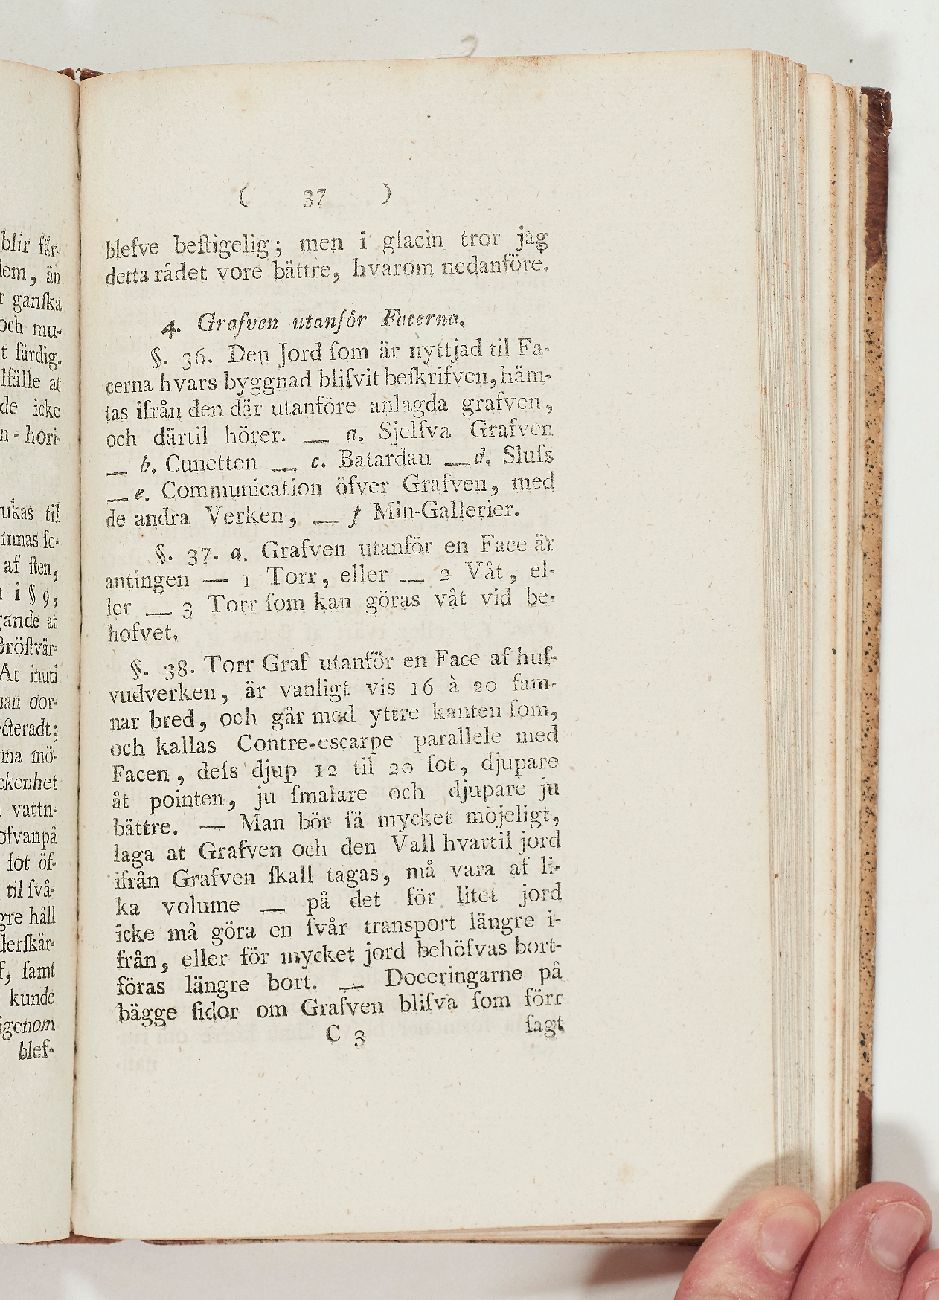 blir fär-
dem, än
t ganſka
och mu-
t färdig.
lfälle at
de icke
n-hori-
ukas til
ſten,
i § 9,
gande af
Bröſtvär-
At inuti
ſteradt:
ckenhet
vattn-
ofvanpå
fot öf-
til ſvå-
gre håll
derſkär-
f, ſamt
kunde
igenom
blef-
( 37 )
blefve beſtigelig; men i glacin tror jag
detta rådet vore bättre, hvarom nedanföre.
4. Grafven utanför Facerna.
§. 36. Den Jord ſom är nyttjad til Fa-
cerna hvars byggnad blifvit beſkrifven, häm-
tas ifrån den där utanföre anlagda grafven,
och därtil hörer. — a. Sjelfva Grafven
— b. Cunetten — c. Batardau — d. Sluſs
— e. Communication öfver Grafven, med
de andra Verken, — f Min-Gallerier.
§. 37. a. Grafven utanför en Face är
antingen — 1 Torr, eller — 2 Våt, el-
ler — 3 Torr ſom kan göras våt vid be-
hofvet.
§. 38. Torr Graf utanför en Face af huf-
vudverken, är vanligt vis 16 à 20 fam-
nar bred, och går med yttre kanten ſom,
och kallas Contre-escarpe parallele med
Facen, deſs djup 12 til 20 fot, djupare
åt pointen, ju ſmalare och djupare ju
bättre. — Man bör ſå mycket möjeligt,
laga at Grafven och den Vall hvartil jord
ifrån Grafven ſkall tagas, må vara af li-
ka volume — på det för litet jord
icke må göra en ſvår transport längre i-
från, eller för mycket jord behöfvas bort-
föras längre bort. — Doceringarne på
bägge ſidor om Grafven blifva ſom förr
C 3 ſagt